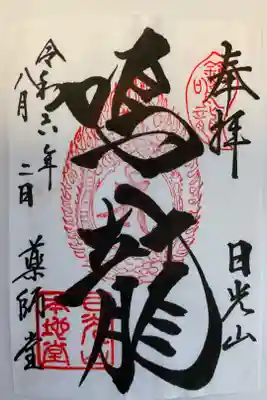 奉拝
日光山
鳴龍
令和六年
八月二日
薬師堂
日光山
本地堂